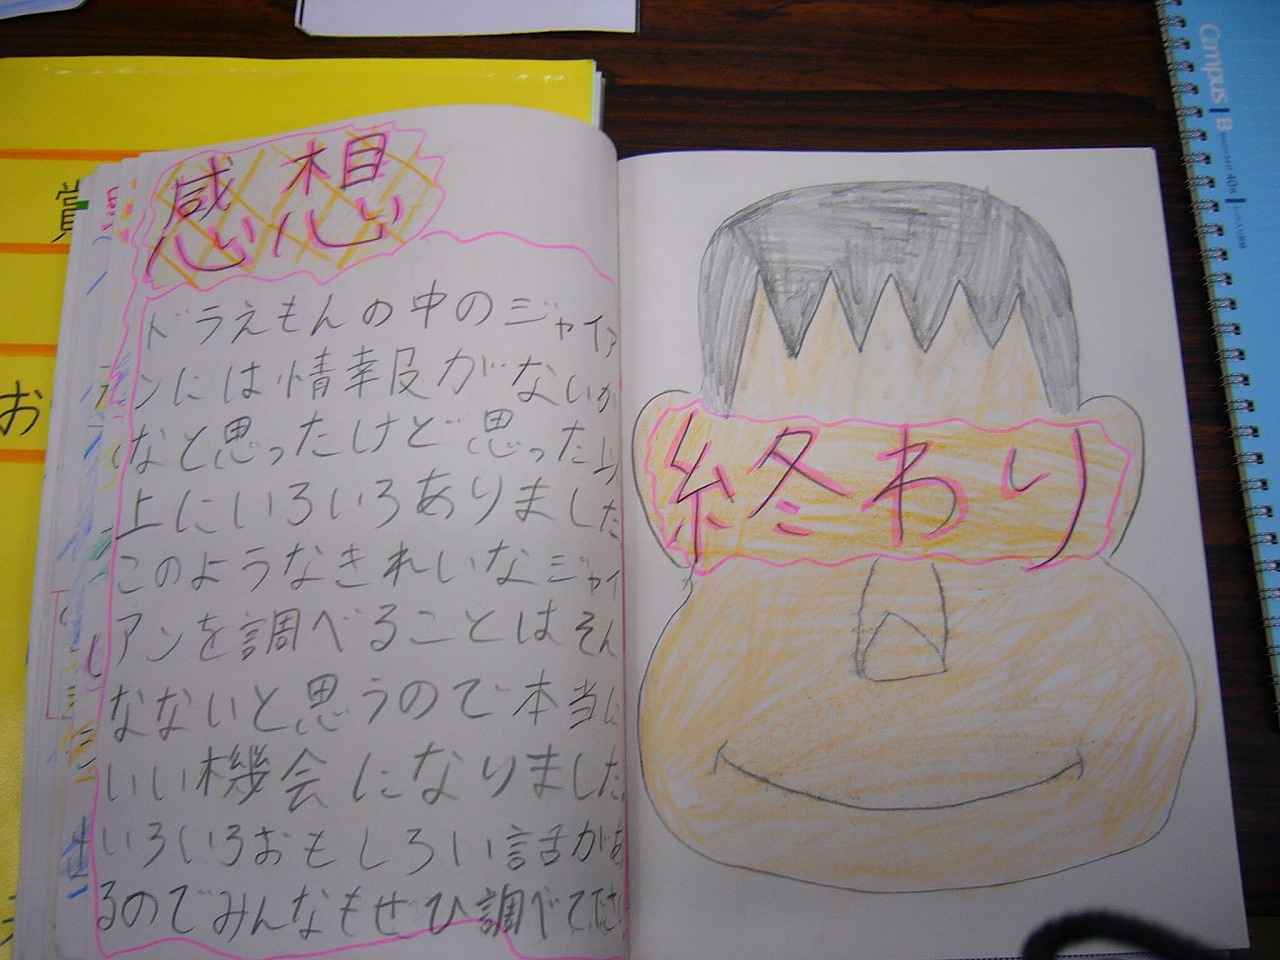 感想
ドラえもんの中のジャイア
ンには情報がないか
なと思ったけど思った以
上にいろいろありました
このようなきれいなジャイ
アンを調べることはそん
なないと思うので本当に
いい機会になりました
いろいろおもしろい話があ
るのでみんなもぜひ調べてださい
終わり
Campus
B
40
覚
お